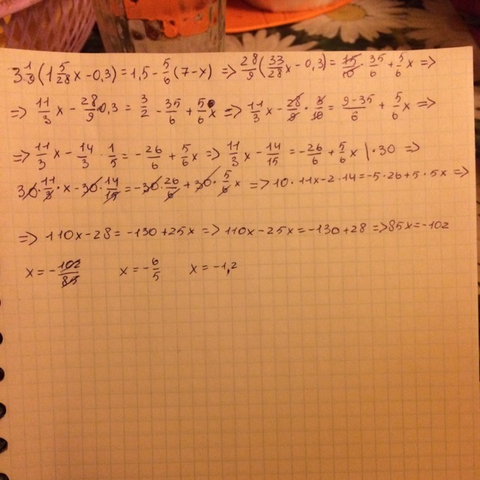 3 1/9 (1 5/28 x - 0,3) = 1,5 - 5/6 (7 - x) => 28/9 (33/28 x - 0,3) = 15/10 - 35/6 + 5/6 x =>
=> 11/3 x - 28/9 · 0,3 = 3/2 - 35/6 + 5/6 x => 11/3 x - 28/9 · 3/10 = 9-35/6 + 5/6 x =>
=> 11/3 x - 14/3 · 1/5 = - 26/6 + 5/6 x => 11/3 x - 14/15 = - 26/6 + 5/6 x | · 30 =>
30 · 11/3 · x - 30 · 14/15 = - 30 · 26/6 + 30 · 5/6 x => 10 · 11x - 2 · 14 = -5 · 26 + 5 · 5x =>
=> 110x - 28 = -130 + 25x => 110x - 25x = -130 + 28 => 85x = -102
x = - 102/85 x = - 6/5 x = -1,2